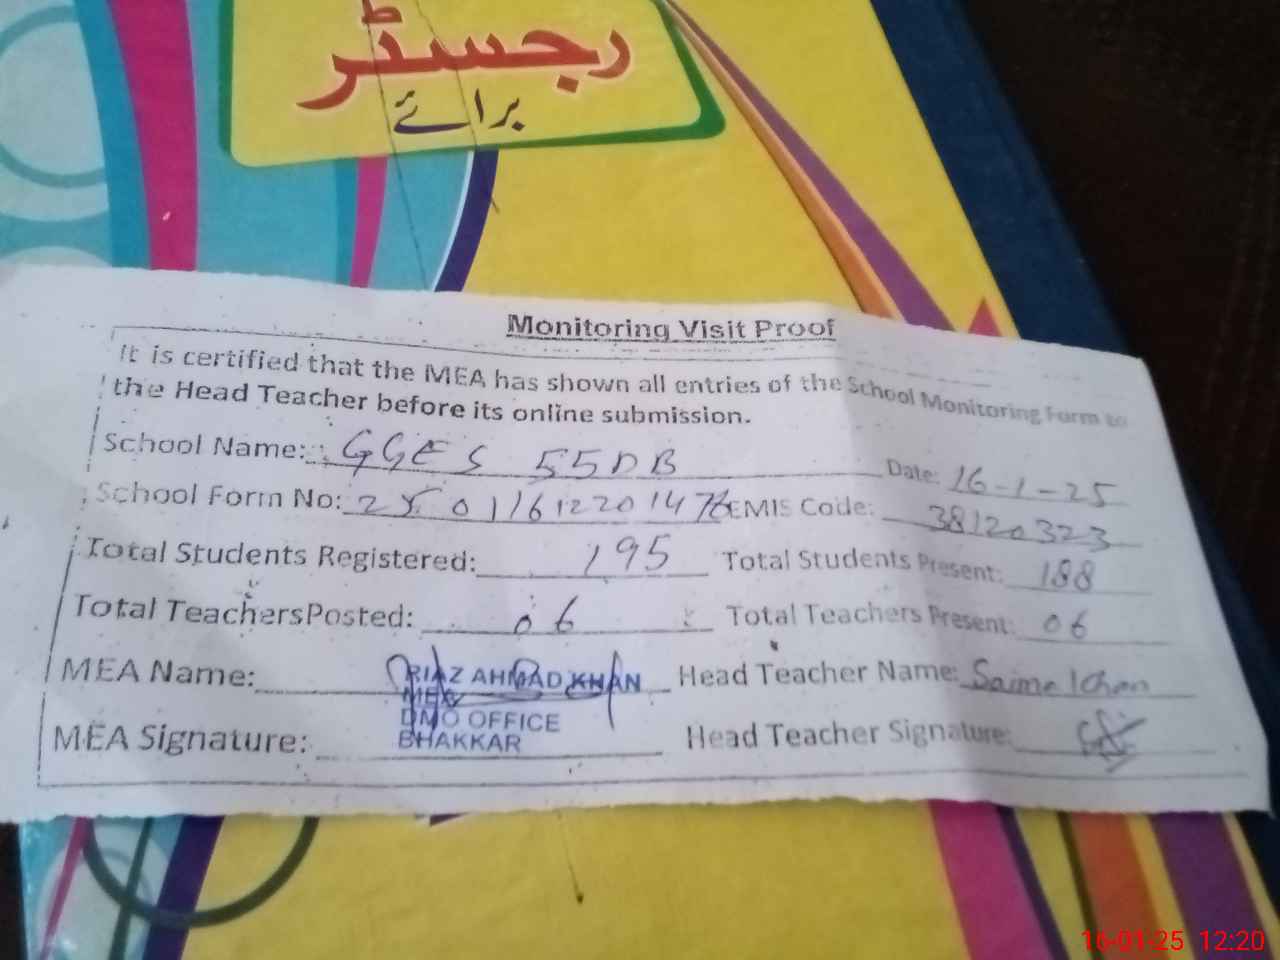 رجسٹر
برائے
Monitoring Visit Proof
It is certified that the MEA has shown all entries of the School Monitoring Form to
the Head Teacher before its online submission.
School Name: GGES 55DB Date: 16-1-25
School Form No: EMIS Code: 38120323
Total Students Registered: 195 Total Students Present: 188
Total TeachersPosted: 06 Total Teachers Present: 06
MEA Name: RIAZ AHMAD KHAN Head Teacher Name: Saima Khan
MEA
DMO OFFICE
MEA Signature: BHAKKAR Head Teacher Signature:
16-01-25 12:20